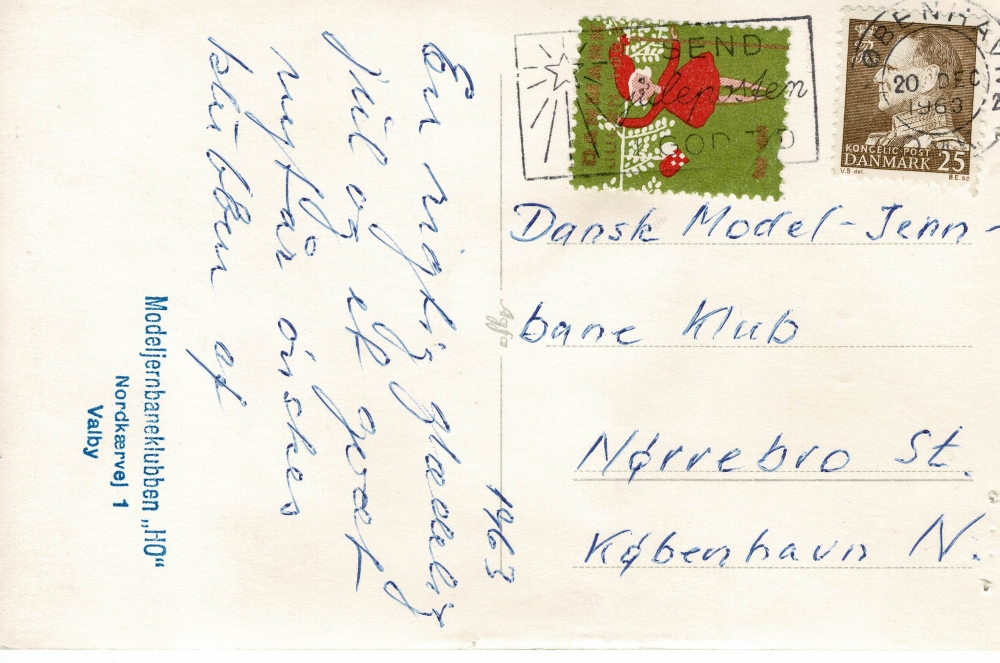 En rigtig glædelig
jul og et godt
nytår ønskes
klubben af
Modeljernbaneklubben „HO"
Nordkærvej 1
Valby
1963
Agfa
SEND
juleposten
I GOD TID
20 DEC
1963
KONGELIG POST
DANMARK 25
V.B del.
B.E.sc
Dansk Model-Jern-
bane Klub
Nørrebro St.
København N.